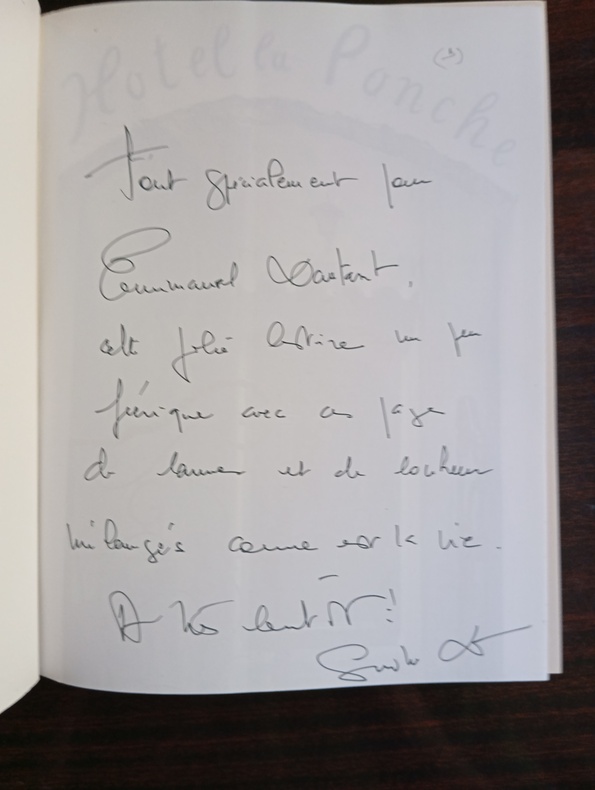 Hotel la Ponche
Tout spécialement pour
Emmanuel
cette jolie histoire un peu
féérique avec ces pages
de larmes et de
mélangés comme est la vie.
A très bientôt!